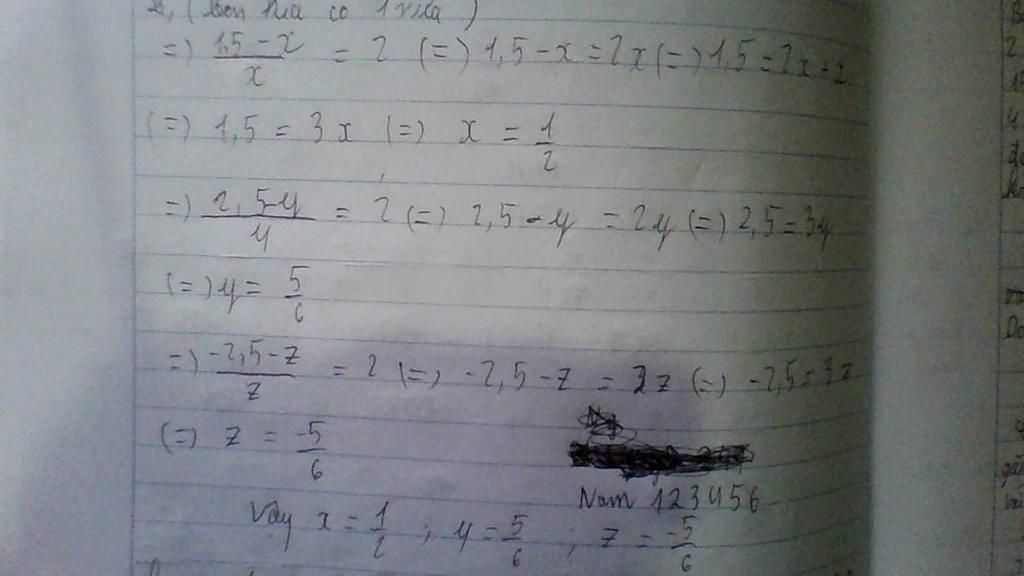 (bên kia có 1 nữa)
=) (1,5 - x)/x = 2 (=) 1,5 - x = 2x (=) 1,5 = 2x + x
(=) 1,5 = 3x (=) x = 1/2
=) (2,5 - y)/y = 2 (=) 2,5 - y = 2y (=) 2,5 = 3y
(=) y = 5/6
=) (-2,5 - z)/z = 2 (=) -2,5 - z = 2z (=) -2,5 = 3z
(=) z = -5/6
Nam 123456
Vậy x = 1/2 ; y = 5/6 ; z = -5/6